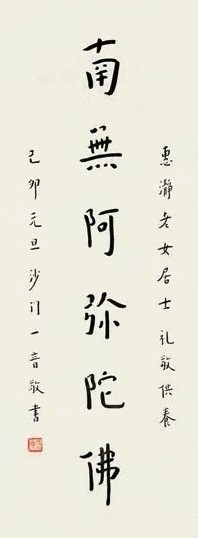 惠瀞老女居士礼敬供养
南無阿弥陀佛
己卯元旦沙门一音敬书